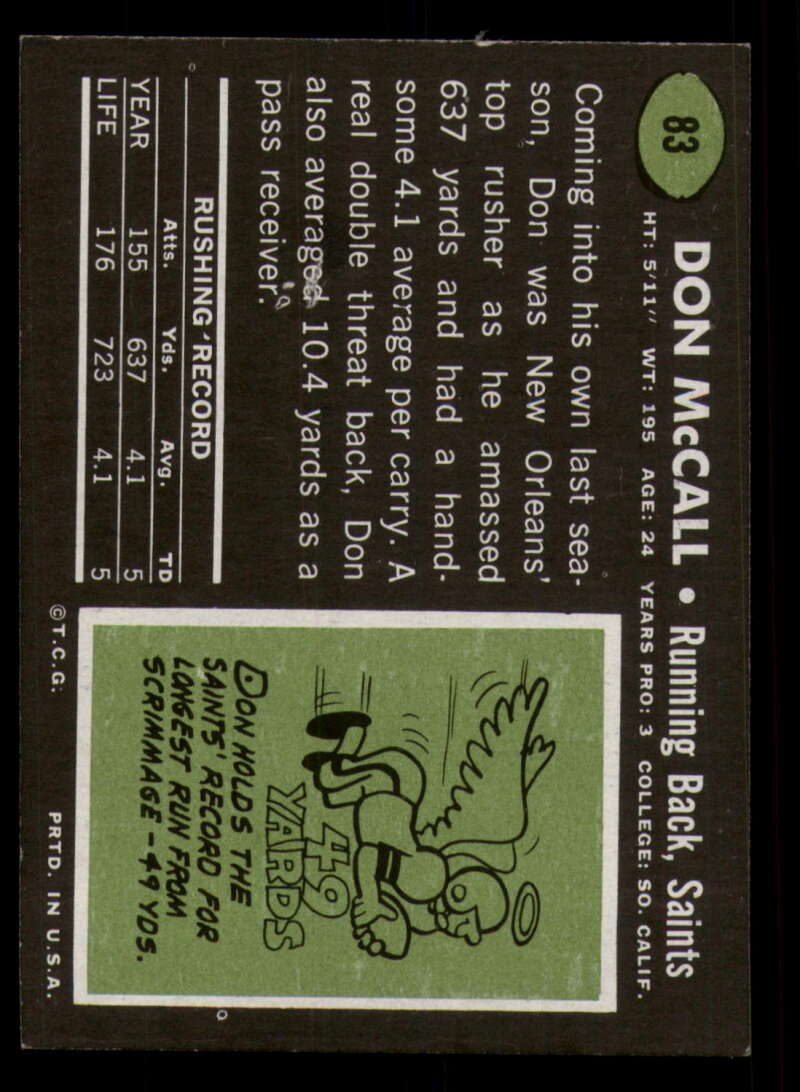 83
DON McCALL • Running Back, Saints
HT: 5'11" WT: 195 AGE: 24 YEARS PRO: 3 COLLEGE: SO. CALIF.
Coming into his own last sea-
son, Don was New Orleans'
top rusher as he amassed
637 yards and had a hand-
some 4.1 average per carry. A
real double threat back, Don
also averaged 10.4 yards as a
pass receiver.
RUSHING RECORD
Atts. Yds. Avg. TD
YEAR 155 637 4.1 5
LIFE 176 723 4.1 5
49
YARDS
DON HOLDS THE
SAINTS' RECORD FOR
LONGEST RUN FROM
SCRIMMAGE - 49 YDS.
©T.C.G. PRTD. IN U.S.A.